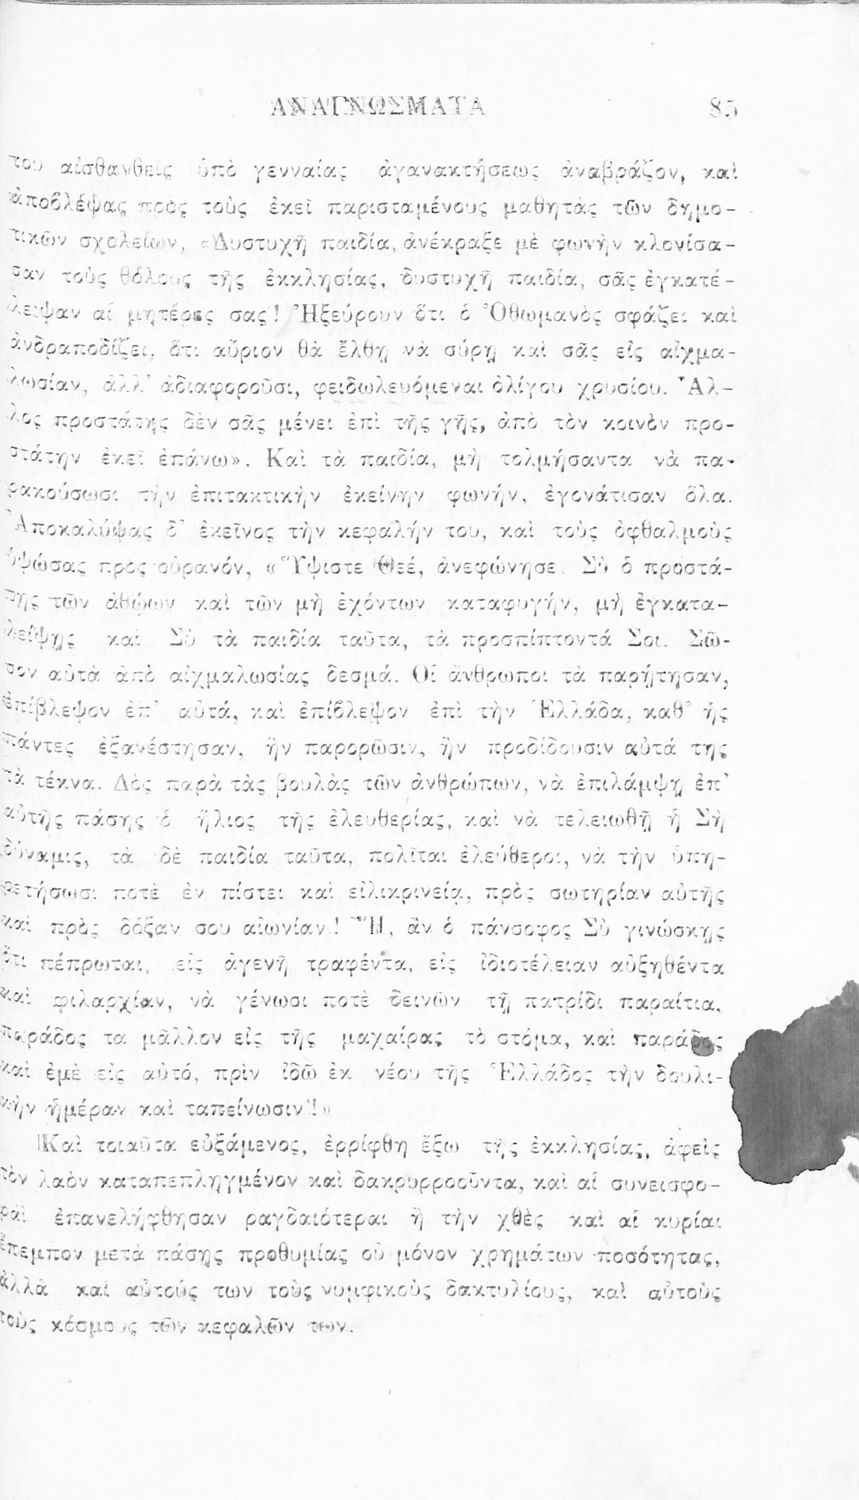 ΑΝΑΓΝΩΣΜΑΤΑ 85
του αἰσθανθεὶς ὑπὸ γενναίας ἀγανακτήσεως ἀναβράζον, καὶ
ἀποβλέψας πρὸς τοὺς ἐκεῖ παρισταμένους μαθητὰς τῶν δημο-
τικῶν σχολείων, «Δυστυχῆ παιδία, ἀνέκραξε μὲ φωνὴν κλονίσα-
σαν τοὺς θόλους τῆς ἐκκλησίας, δυστυχῆ παιδία, σᾶς ἐγκατέ-
λειψαν αἱ μητέρες σας! Ἠξεύρουν ὅτι ὁ Ὀθωμανὸς σφάζει καὶ
ἀνδραποδίζει, ὅτι αὔριον θὰ ἔλθῃ νὰ σύρῃ καὶ σᾶς εἰς αἰχμα-
λωσίαν, ἀλλ' ἀδιαφοροῦσι, φειδωλευόμεναι ὀλίγου χρυσίου. Ἄλ-
λος προστάτης δὲν σᾶς μένει ἐπὶ τῆς γῆς, ἀπὸ τὸν κοινὸν προ-
στάτην ἐκεῖ ἐπάνω». Καὶ τὰ παιδία, μὴ τολμήσαντα νὰ πα-
ρακούσωσι τὴν ἐπιτακτικὴν ἐκείνην φωνήν, ἐγονάτισαν ὅλα.
Ἀποκαλύψας δ' ἐκεῖνος τὴν κεφαλήν του, καὶ τοὺς ὀφθαλμοὺς
ὑψώσας πρὸς οὐρανόν, «Ὕψιστε Θεέ, ἀνεφώνησε. Σὺ ὁ προστά-
της τῶν ἀθώων καὶ τῶν μὴ ἐχόντων καταφυγήν, μὴ ἐγκατα-
λείψῃς καὶ Σὺ τὰ παιδία ταῦτα, τὰ προσπίπτοντά Σοι. Σῶ-
σον αὐτὰ ἀπὸ αἰχμαλωσίας δεσμά. Οἱ ἄνθρωποι τὰ παρῄτησαν,
ἐπίβλεψον ἐπ' αὐτά, καὶ ἐπίβλεψον ἐπὶ τὴν Ἑλλάδα, καθ' ἧς
πάντες ἐξανέστησαν, ἣν παρορῶσιν, ἣν προδίδουσιν αὐτά της
τὰ τέκνα. Δὸς παρὰ τὰς βουλὰς τῶν ἀνθρώπων, νὰ ἐπιλάμψῃ ἐπ'
αὐτῆς πάσης ὁ ἥλιος τῆς ἐλευθερίας, καὶ νὰ τελειωθῇ ἡ Σὴ
δύναμις, τὰ δὲ παιδία ταῦτα, πολῖται ἐλεύθεροι, νὰ τὴν ὑπη-
ρετήσωσι ποτὲ ἐν πίστει καὶ εἰλικρινείᾳ, πρὸς σωτηρίαν αὐτῆς
καὶ πρὸς δόξαν σου αἰωνίαν! Ἤ, ἂν ὁ πάνσοφος Σὺ γινώσκῃς
ὅτι πέπρωται, εἰς ἀγενῆ τραφέντα, εἰς ἰδιοτέλειαν αὐξηθέντα
καὶ φιλαρχίαν, νὰ γένωσι ποτὲ δεινῶν τῇ πατρίδι παραίτια,
παράδος τα μᾶλλον εἰς τῆς μαχαίρας τὸ στόμα, καὶ παράδος
καὶ ἐμὲ εἰς αὐτό, πρὶν ἰδῶ ἐκ νέου τῆς Ἑλλάδος τὴν δουλι-
κὴν ἡμέραν καὶ ταπείνωσιν!»
Καὶ τοιαῦτα εὐξάμενος, ἐρρίφθη ἔξω τῆς ἐκκλησίας, ἀφεὶς
τὸν λαὸν καταπεπληγμένον καὶ δακρυρροοῦντα, καὶ αἱ συνεισφο-
ραὶ ἐπανελήφθησαν ραγδαιότεραι ἢ τὴν χθὲς καὶ αἱ κυρίαι
ἔπεμπον μετὰ πάσης προθυμίας οὐ μόνον χρημάτων ποσότητας,
ἀλλὰ καὶ αὐτούς των τοὺς νυμφικοὺς δακτυλίους, καὶ αὐτοὺς
τοὺς κόσμους τῶν κεφαλῶν των.